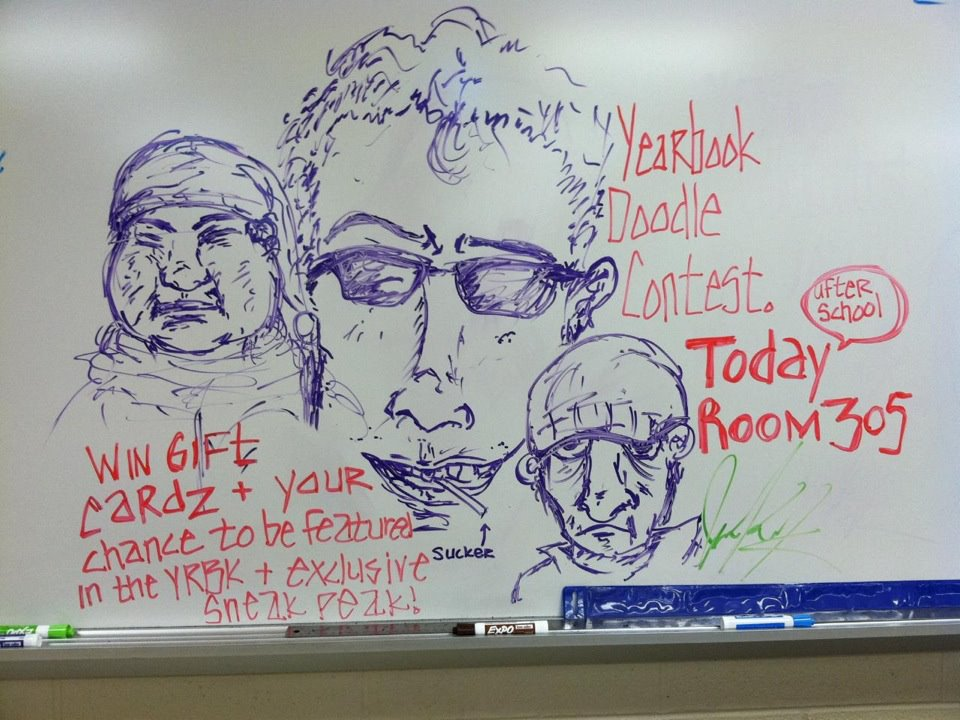 Yearbook
Doodle
Contest.
after
school
Today
ROOM 305
WIN GIFt
Cardz + your
chance to be featured
in the YRBK + exclusive
Sneak Peak!
Sucker
EXPO